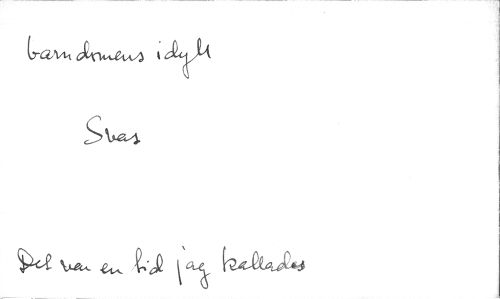 barndomens idyll
Svas
Det var en tid jag kallades